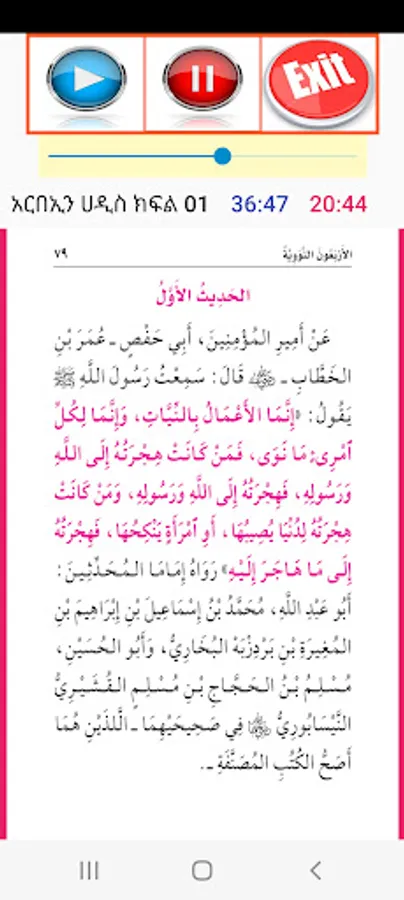 Exit
አርበኢን ሀዲስ ክፍል 01 36:47 20:44
الأَرْبَعُونَ النَّوَوِيَّةُ ٧٩
الحَدِيثُ الأَوَّلُ
عَنْ أَمِيرِ المُؤْمِنِينَ، أَبِي حَفْصٍ ـ عُمَرَ بْنِ
الخَطَّابِ ـ رضي الله عنه قَالَ: سَمِعْتُ رَسُولَ اللَّهِ ﷺ
يَقُولُ: «إِنَّمَا الأَعْمَالُ بِالنِّيَّاتِ، وَإِنَّمَا لِكُلِّ
ٱمْرِئٍ مَا نَوَى، فَمَنْ كَانَتْ هِجْرَتُهُ إِلَى اللَّهِ
وَرَسُولِهِ، فَهِجْرَتُهُ إِلَى اللَّهِ وَرَسُولِهِ، وَمَنْ كَانَتْ
هِجْرَتُهُ لِدُنْيَا يُصِيبُهَا، أَوِ ٱمْرَأَةٍ يَنْكِحُهَا، فَهِجْرَتُهُ
إِلَى مَا هَاجَرَ إِلَيْهِ» رَوَاهُ إِمَامَا المُحَدِّثِينَ:
أَبُو عَبْدِ اللَّهِ، مُحَمَّدُ بْنُ إِسْمَاعِيلَ بْنِ إِبْرَاهِيمَ بْنِ
المُغِيرَةِ بْنِ بَرْدِزْبَهْ البُخَارِيُّ، وَأَبُو الحُسَيْنِ،
مُسْلِمُ بْنُ الحَجَّاجِ بْنِ مُسْلِمٍ القُشَيْرِيُّ
النَّيْسَابُورِيُّ رضي الله عنهما فِي صَحِيحَيْهِمَا ـ الَّلذَيْنِ هُمَا
أَصَحُّ الكُتُبِ المُصَنَّفَةِ ـ.